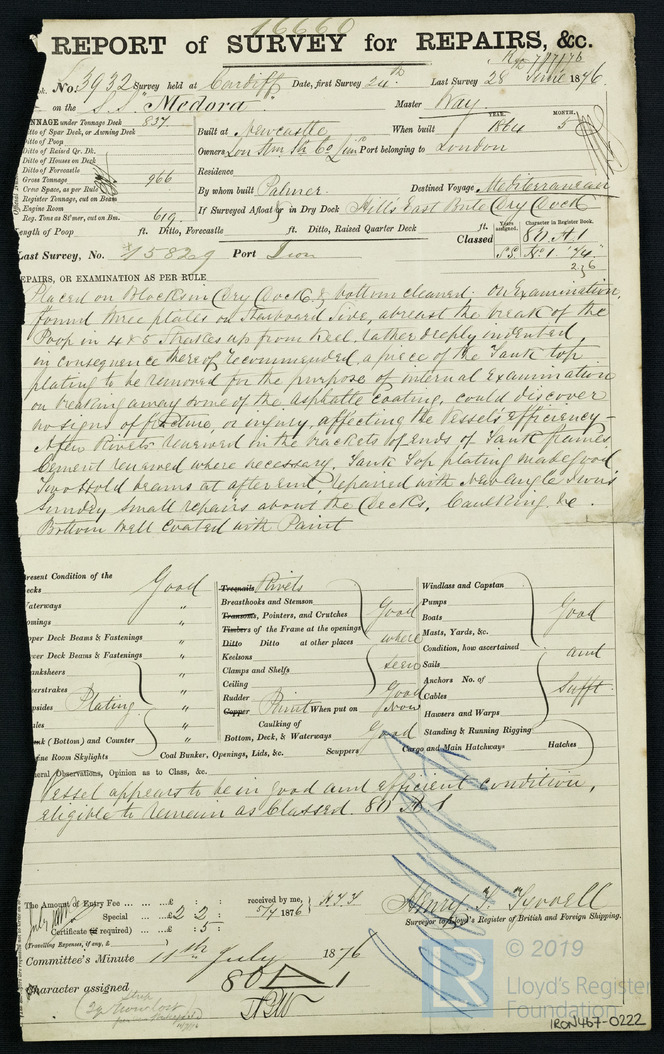 16660
REPORT of SURVEY for REPAIRS, &c.
Rec 7/7/76
No. 3932 Survey held at Cardiff Date, first Survey 24th Last Survey 28 June 1876.
on the S.S. "Medora" Master Way
TONNAGE under Tonnage Deck 837
Ditto of Spar Deck, or Awning Deck
Ditto of Poop
Ditto of Raised Qr. Dk.
Ditto of Houses on Deck
Ditto of Forecastle
Gross Tonnage 966
Crew Space, as per Rule
Register Tonnage, cut on Beam
Engine Room
Reg. Tons as St'mer, cut on Bm. 619
Built at Newcastle When built YEAR. 1864 MONTH. 5
Owners Lon Stm Sh Co Lim Port belonging to London
Residence
By whom built Palmer Destined Voyage Mediterranean
If Surveyed Afloat or in Dry Dock Hills East Bute Dry Dock
Length of Poop ft. Ditto, Forecastle ft. Ditto, Raised Quarter Deck ft.
Classed Years assigned. Character in Register Book. 80 A.1
S.S. No 1. 74
2,6
Last Survey, No. 15829 Port Iron
REPAIRS, OR EXAMINATION AS PER RULE
Placed on Blocks in Dry Dock, & bottom cleaned. On Examination,
found three plates on Starboard Side, abreast the break of the
Poop in 4 & 5 Strakes up from Keel, rather deeply indented,
in consequence thereof, recommended a piece of the Tank top
plating to be removed for the purpose of internal Examination
on breaking away some of the asphalte coating, could discover
no signs of fracture, or injury, affecting the Vessel's Efficiency -
A few Rivets renewed in the brackets of ends of Tank frames,
Cement renewed where necessary. Tank Top plating made good
Two Hold beams at after end, repaired with New angle Irons
Sundry small repairs about the Decks, Caulking &c.
Bottom well coated with Paint
Present Condition of the
Decks Good
Waterways "
Comings "
Upper Deck Beams & Fastenings "
Lower Deck Beams & Fastenings "
Planksheers "
Sheerstrakes "
Topsides Plating "
Wales "
Plank (Bottom) and Counter "
Engine Room Skylights Coal Bunker, Openings, Lids, &c. Scuppers Cargo and Main Hatchways Hatches
Treenails Rivets
Breasthooks and Stemson
Transoms, Pointers, and Crutches Good
Timbers of the Frame at the openings
Ditto Ditto at other places where
Keelsons
Clamps and Shelfs seen
Ceiling
Rudder Good
Copper Paint When put on Now
Caulking of
Bottom, Deck, & Waterways Good
Windlass and Capstan
Pumps
Boats Good
Masts, Yards, &c.
Condition, how ascertained and
Sails
Anchors No. of
Cables Sufft.
Hawsers and Warps
Standing & Running Rigging
General Observations, Opinion as to Class, &c.
Vessel appears to be in good and efficient condition,
eligible to remain as Classed. 80 A.1
The Amount of Entry Fee ... ... £ : : received by me,
Special ... ... £ 2 2 : 5/7 1876 H.T.T
Certificate (if required) ... £ : 5 :
(Travelling Expenses, if any, £ )
Henry T. Tyrrell
Surveyor to Lloyd's Register of British and Foreign Shipping.
Committee's Minute 11th July 1876
Character assigned 80 A 1
© 2019
Lloyd's Register
Foundation
IRON467-0222